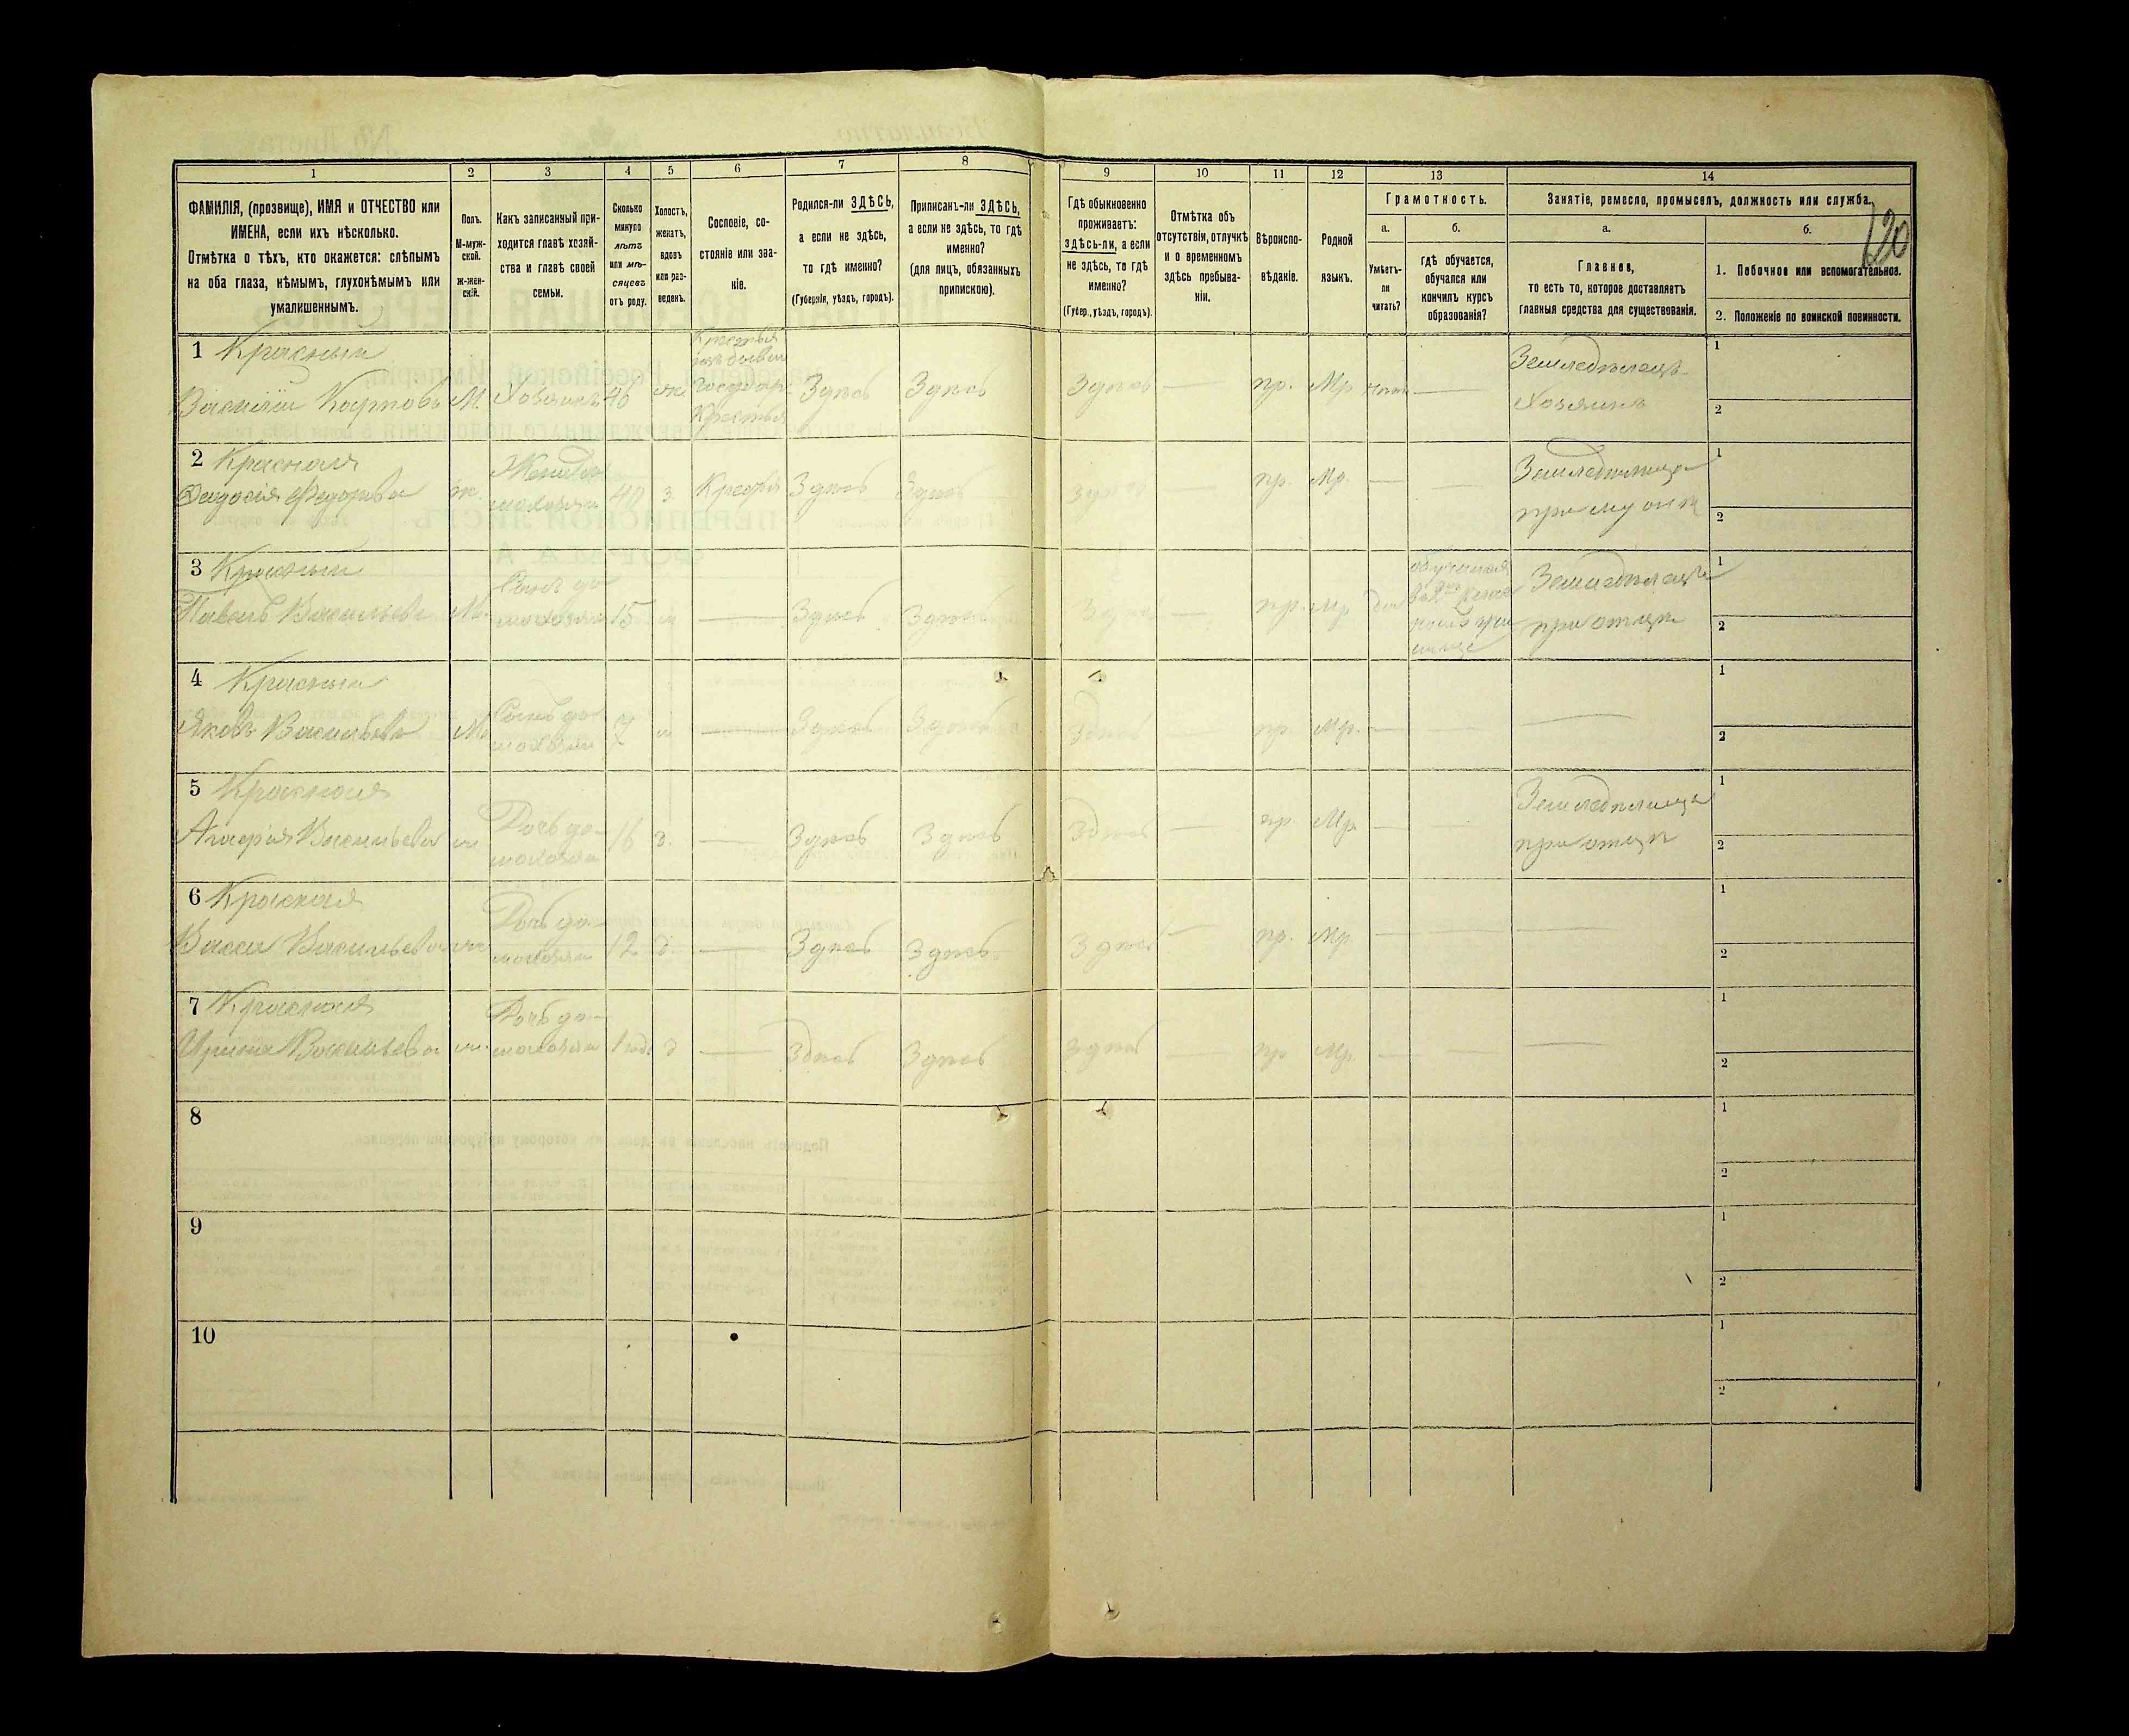 1 2 3 4 5 6 7 8 9 10 11 12 13 14
ФАМИЛІЯ, (прозвище), ИМЯ и ОТЧЕСТВО или
ИМЕНА, если ихъ нѣсколько.
Отмѣтка о тѣхъ, кто окажется: слѣпымъ
на оба глаза, нѣмымъ, глухонѣмымъ или
умалишеннымъ.
Полъ.
М-муж-
ской.
ж-жен-
скій.
Какъ записанный при-
ходится главѣ хозяй-
ства и главѣ своей
семьи.
Сколько
минуло
лѣтъ
или мѣ-
сяцевъ
отъ роду.
Холостъ,
женатъ,
вдовъ
или раз-
веденъ.
Сословіе, со-
стояніе или зва-
ніе.
Родился-ли ЗДѢСЬ,
а если не здѣсь,
то гдѣ именно?
(Губернія, уѣздъ, городъ).
Приписанъ-ли ЗДѢСЬ,
а если не здѣсь, то гдѣ
именно?
(для лицъ, обязанныхъ
припискою).
Гдѣ обыкновенно
проживаетъ:
здѣсь-ли, а если
не здѣсь, то гдѣ
именно?
(Губер., уѣздъ, городъ).
Отмѣтка объ
отсутствіи, отлучкѣ
и о временномъ
здѣсь пребыва-
ніи.
Вѣроиспо-
вѣданіе.
Родной
языкъ.
Грамотность.
а.
Умѣетъ-
ли
читать?
б.
гдѣ обучается,
обучался или
кончилъ курсъ
образованія?
Занятіе, ремесло, промыселъ, должность или служба.
а.
Главное,
то есть то, которое доставляетъ
главныя средства для существованія.
б.
120
1. Побочное или вспомогательное.
2. Положеніе по воинской повинности.
1 Красный
Василій Карповъ М. Хозяинъ 46 Здѣсь Здѣсь Здѣсь — пр. Мр —
государ.
Земледѣлецъ
Хозяинъ
1
2
2 Красная
Федосія Федорова ж. 40 з Здѣсь Здѣсь Здѣсь пр. Мр. — —
Жена до
мохозяи
Земледѣлица
при мужѣ
1
2
3 Красный
Павелъ Васильевъ М. 15 — Здѣсь Здѣсь Здѣсь — пр. Мр
Сынъ до
мохозяи
Земледѣлецъ
при отцѣ
1
2
4 Красный
Яковъ Васильевъ М. 7 — Здѣсь Здѣсь Здѣсь — пр. Мр. — — —
Сынъ до
мохозяи
1
2
5 Красная
Агафія Васильева 16 д. — Здѣсь Здѣсь Здѣсь — пр. Мр. — —
Дочь до-
мохозяи
Земледѣлица
при отцѣ
1
2
6 Красная
Васса Васильева 12 д. — Здѣсь Здѣсь Здѣсь — пр. Мр — — —
Дочь до-
мохозяи
1
2
7 Красная
Ирина Васильева 1 д — Здѣсь Здѣсь Здѣсь — пр Мр. — — —
Дочь до-
мохозяи
1
2
8
1
2
9
1
2
10
1
2